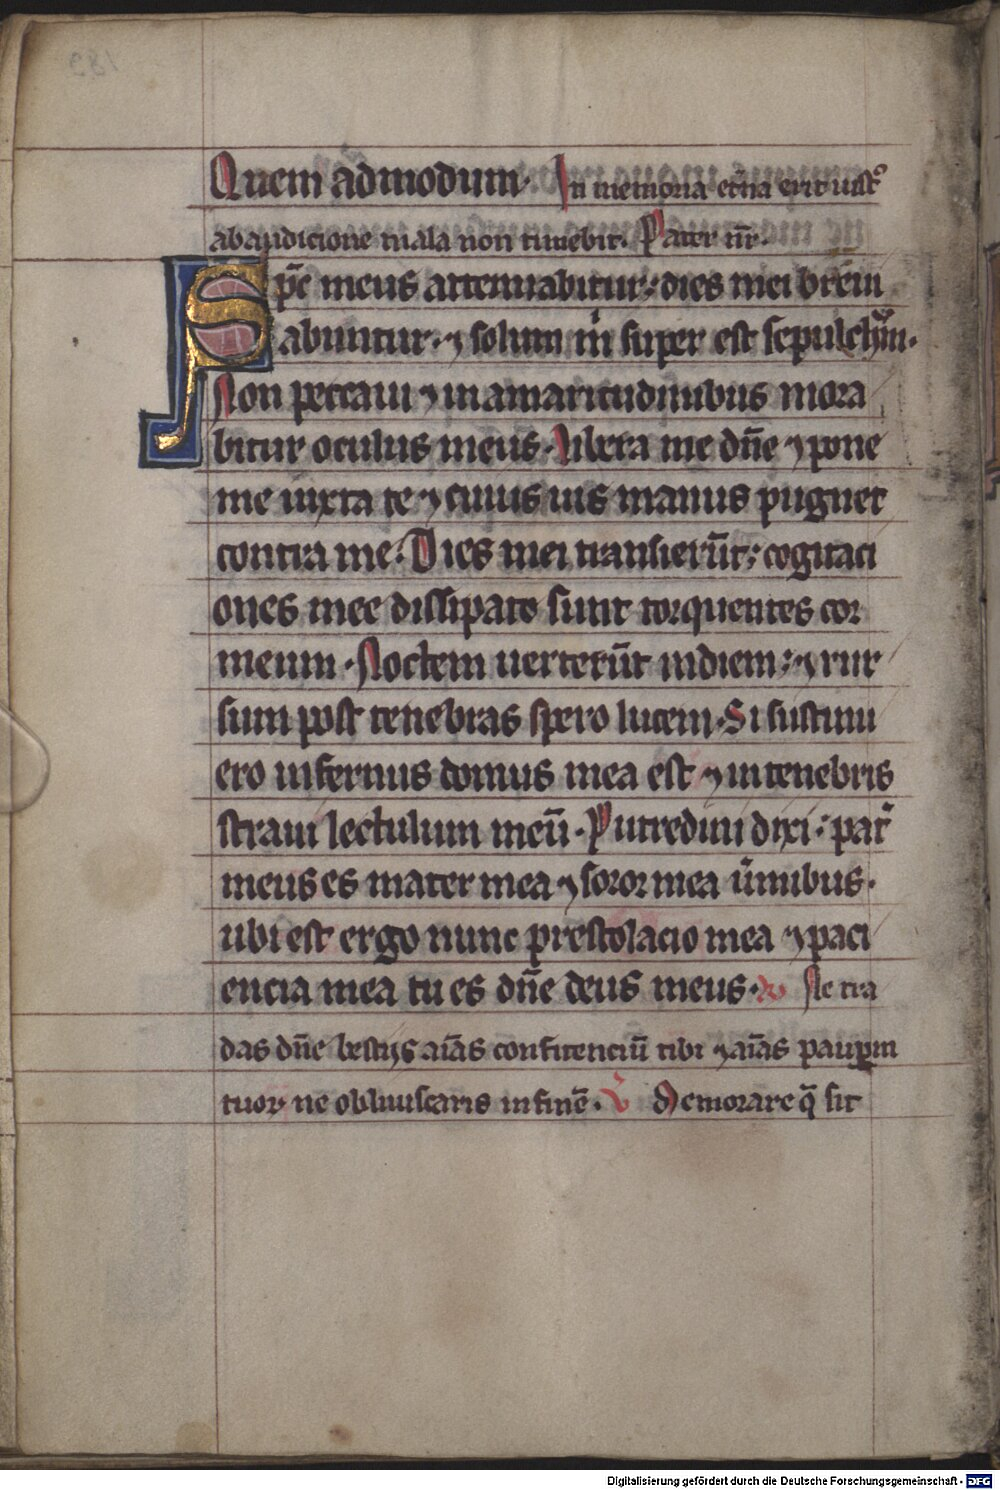 189
Quem admodum. In memoria et̄na erit iust⁹
abaudicione mala non timebit. Pater nr̄.
Sp̄c meus attenuabitur: dies mei breui
abuntur. ⁊ solum m̄ super est sepulchrū.
Non peccaui ⁊ inamaritudinibus mora
bitur oculus meus. Libera me dn̄e ⁊ pone
me iuxta te ⁊ cuius uis manus pugnet
contra me. Dies mei transierūt: cogitaci
ones mee dissipate sunt torquentes cor
meum. Noctem uerterūt indiem: ⁊ rur
sum post tenebras spero lucem. Si sustinu
ero infernus domus mea est ⁊ intenebris
straui lectulum meū. Putredini dixi: pat̄
meus es mater mea ⁊ soror mea u̅mibus.
ubi est ergo nunc prestolacio mea ⁊ paci
encia mea tu es dn̄e deus meus. Ne tra
das dn̄e bestijs aīas confitenciū tibi ⁊ aīas pauꝑm
tuoꝝ ne obliuiscaris infinē. Memorare q̄ sit
Digitalisierung gefördert durch die Deutsche Forschungsgemeinschaft - DFG